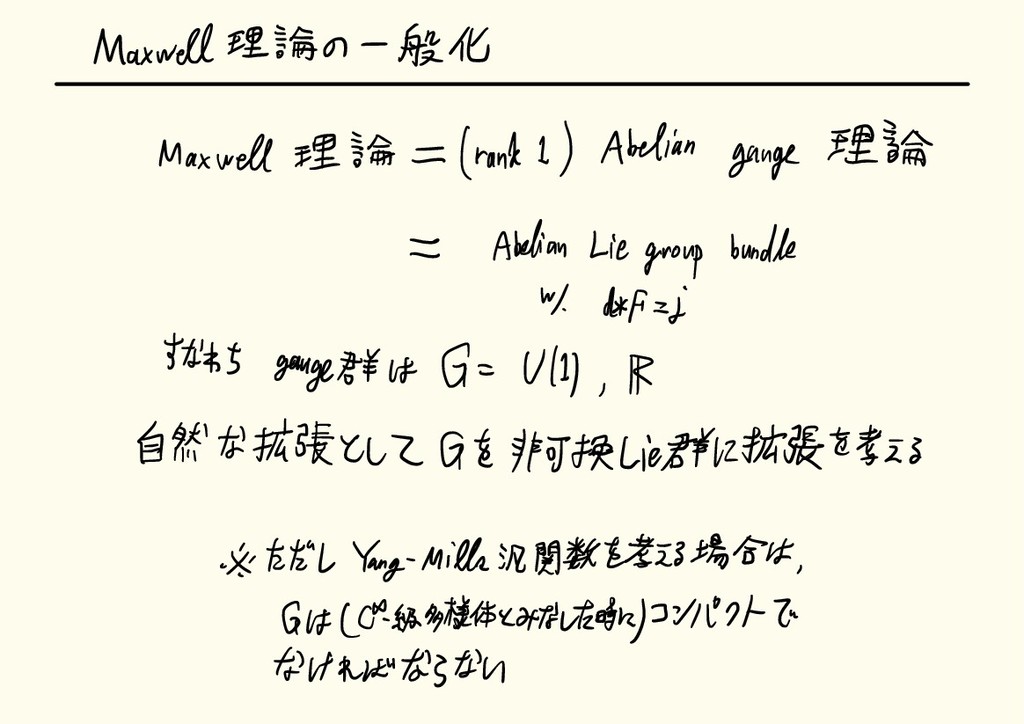 Maxwell 理論の一般化
Maxwell 理論 = (rank 1) Abelian gauge 理論
= Abelian Lie group bundle
w/. d*F=j
すなわち gauge群は G = U(1), ℝ
自然な拡張として Gを非可換Lie群に拡張を考える
※ただし Yang-Mills 汎関数を考える場合は,
Gは(C^∞-級多様体とみなした時に)コンパクトで
なければならない